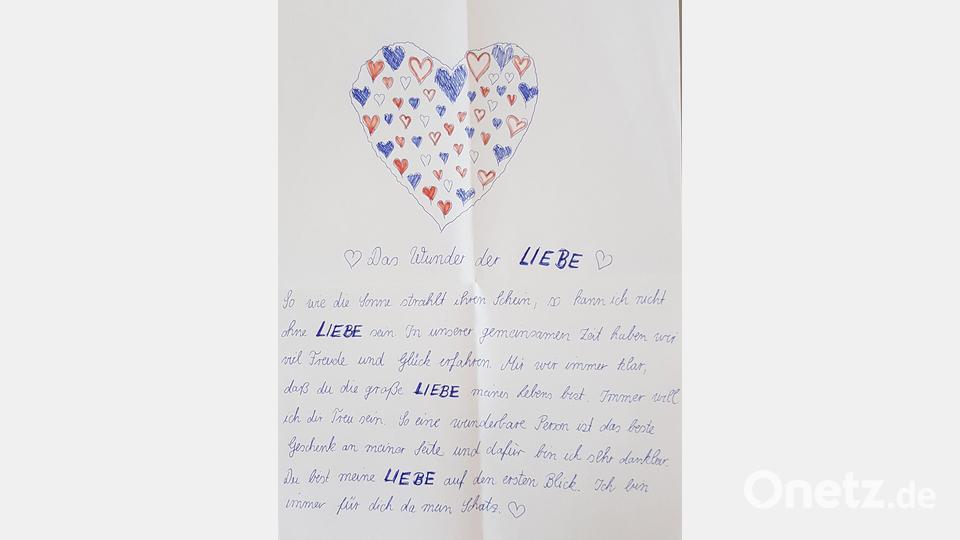 ♡ Das Wunder der LIEBE ♡
So wie die Sonne strahlt ihren Schein, so kann ich nicht
ohne LIEBE sein. In unserer gemeinsamen Zeit haben wir
viel Freude und Glück erfahren. Mir war immer klar,
daß du die große LIEBE meines Lebens bist. Immer will
ich dir Treu sein. So eine wunderbare Person ist das beste
Geschenk an meiner Seite und dafür bin ich sehr dankbar.
Du bist meine LIEBE auf den ersten Blick. Ich bin
immer für dich da mein Schatz. ♡
Onetz.de